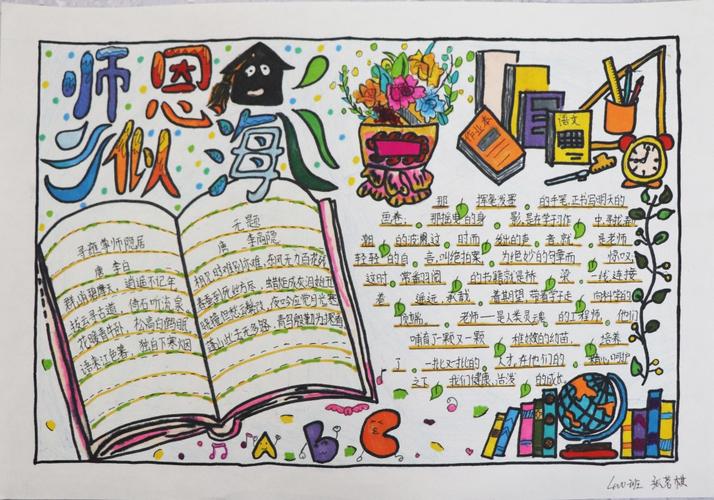 师恩似海
寻雍尊师隐居
唐 李白
群峭碧摩天，逍遥不记年
拨云寻古道，倚石听流泉
花暖青牛卧，松高白鹤眠
语来江色暮，独自下寒烟
无题
唐 李商隐
相见时难别亦难，东风无力百花残
春蚕到死丝方尽，蜡炬成灰泪始干
晓镜但愁云鬓改，夜吟应觉月光寒
蓬山此去无多路，青鸟殷勤为探看
作业本
语文
那 挥毫发墨 的手笔，正书写明天的
思卷，那摇曳的身 影，是在学习作 中寻找
朝 的夜思这 时而 绌的声 音，就 是老师
轻轻 的自 言，叫绝拍案 为绝妙的句章而 惊叹
这时 常番羽阅 的书籍就是桥 梁 一线，连接
着 遥远，承载 着期望，带着学子走 向科学的
顶端。 老师一是人类灵魂 的工程师，他们
哺育了一颗又一颗 稚嫩的幼苗， 培养
了 一批又一批的 人才，在他们的 精心呵护
之下，我们健康、活泼 的成长。
A b C